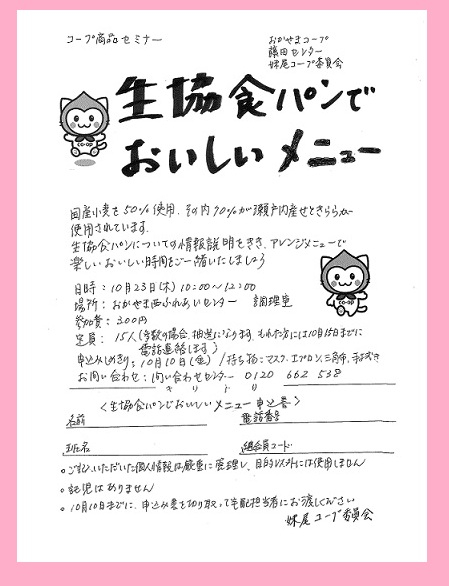 コープ商品セミナー
おかやまコープ
藤田センター
妹尾コープ委員会
生協食パンで
おいしいメニュー
co-op
国産小麦を50%使用、その内70%が瀬戸内産せときららが
使用されています。
生協食パンについての情報説明をきき、アレンジメニューで
楽しいおいしい時間をご一緒いたしましょう
co-op
日時:10月23日(木)10:00~12:00
場所:おかやま西ふれあいセンター 調理室
参加費:300円
定員:15人(多数の場合、抽選になります。もれた方には10月15日までに
電話連絡します)
申込みしめきり:10月10日(金)/持ち物:マスク、エプロン、三角巾、手ふき
お問い合わせ:問い合わせセンター 0120 662 538
きりとり
<生協食パンでおいしいメニュー申込書>
名前 電話番号
班名 組合員コード
ご記入いただいた個人情報は厳重に管理し、目的以外には使用しません
託児はありません
10月10日までに、申込み書を切り取って宅配担当者にお渡しください
妹尾コープ委員会